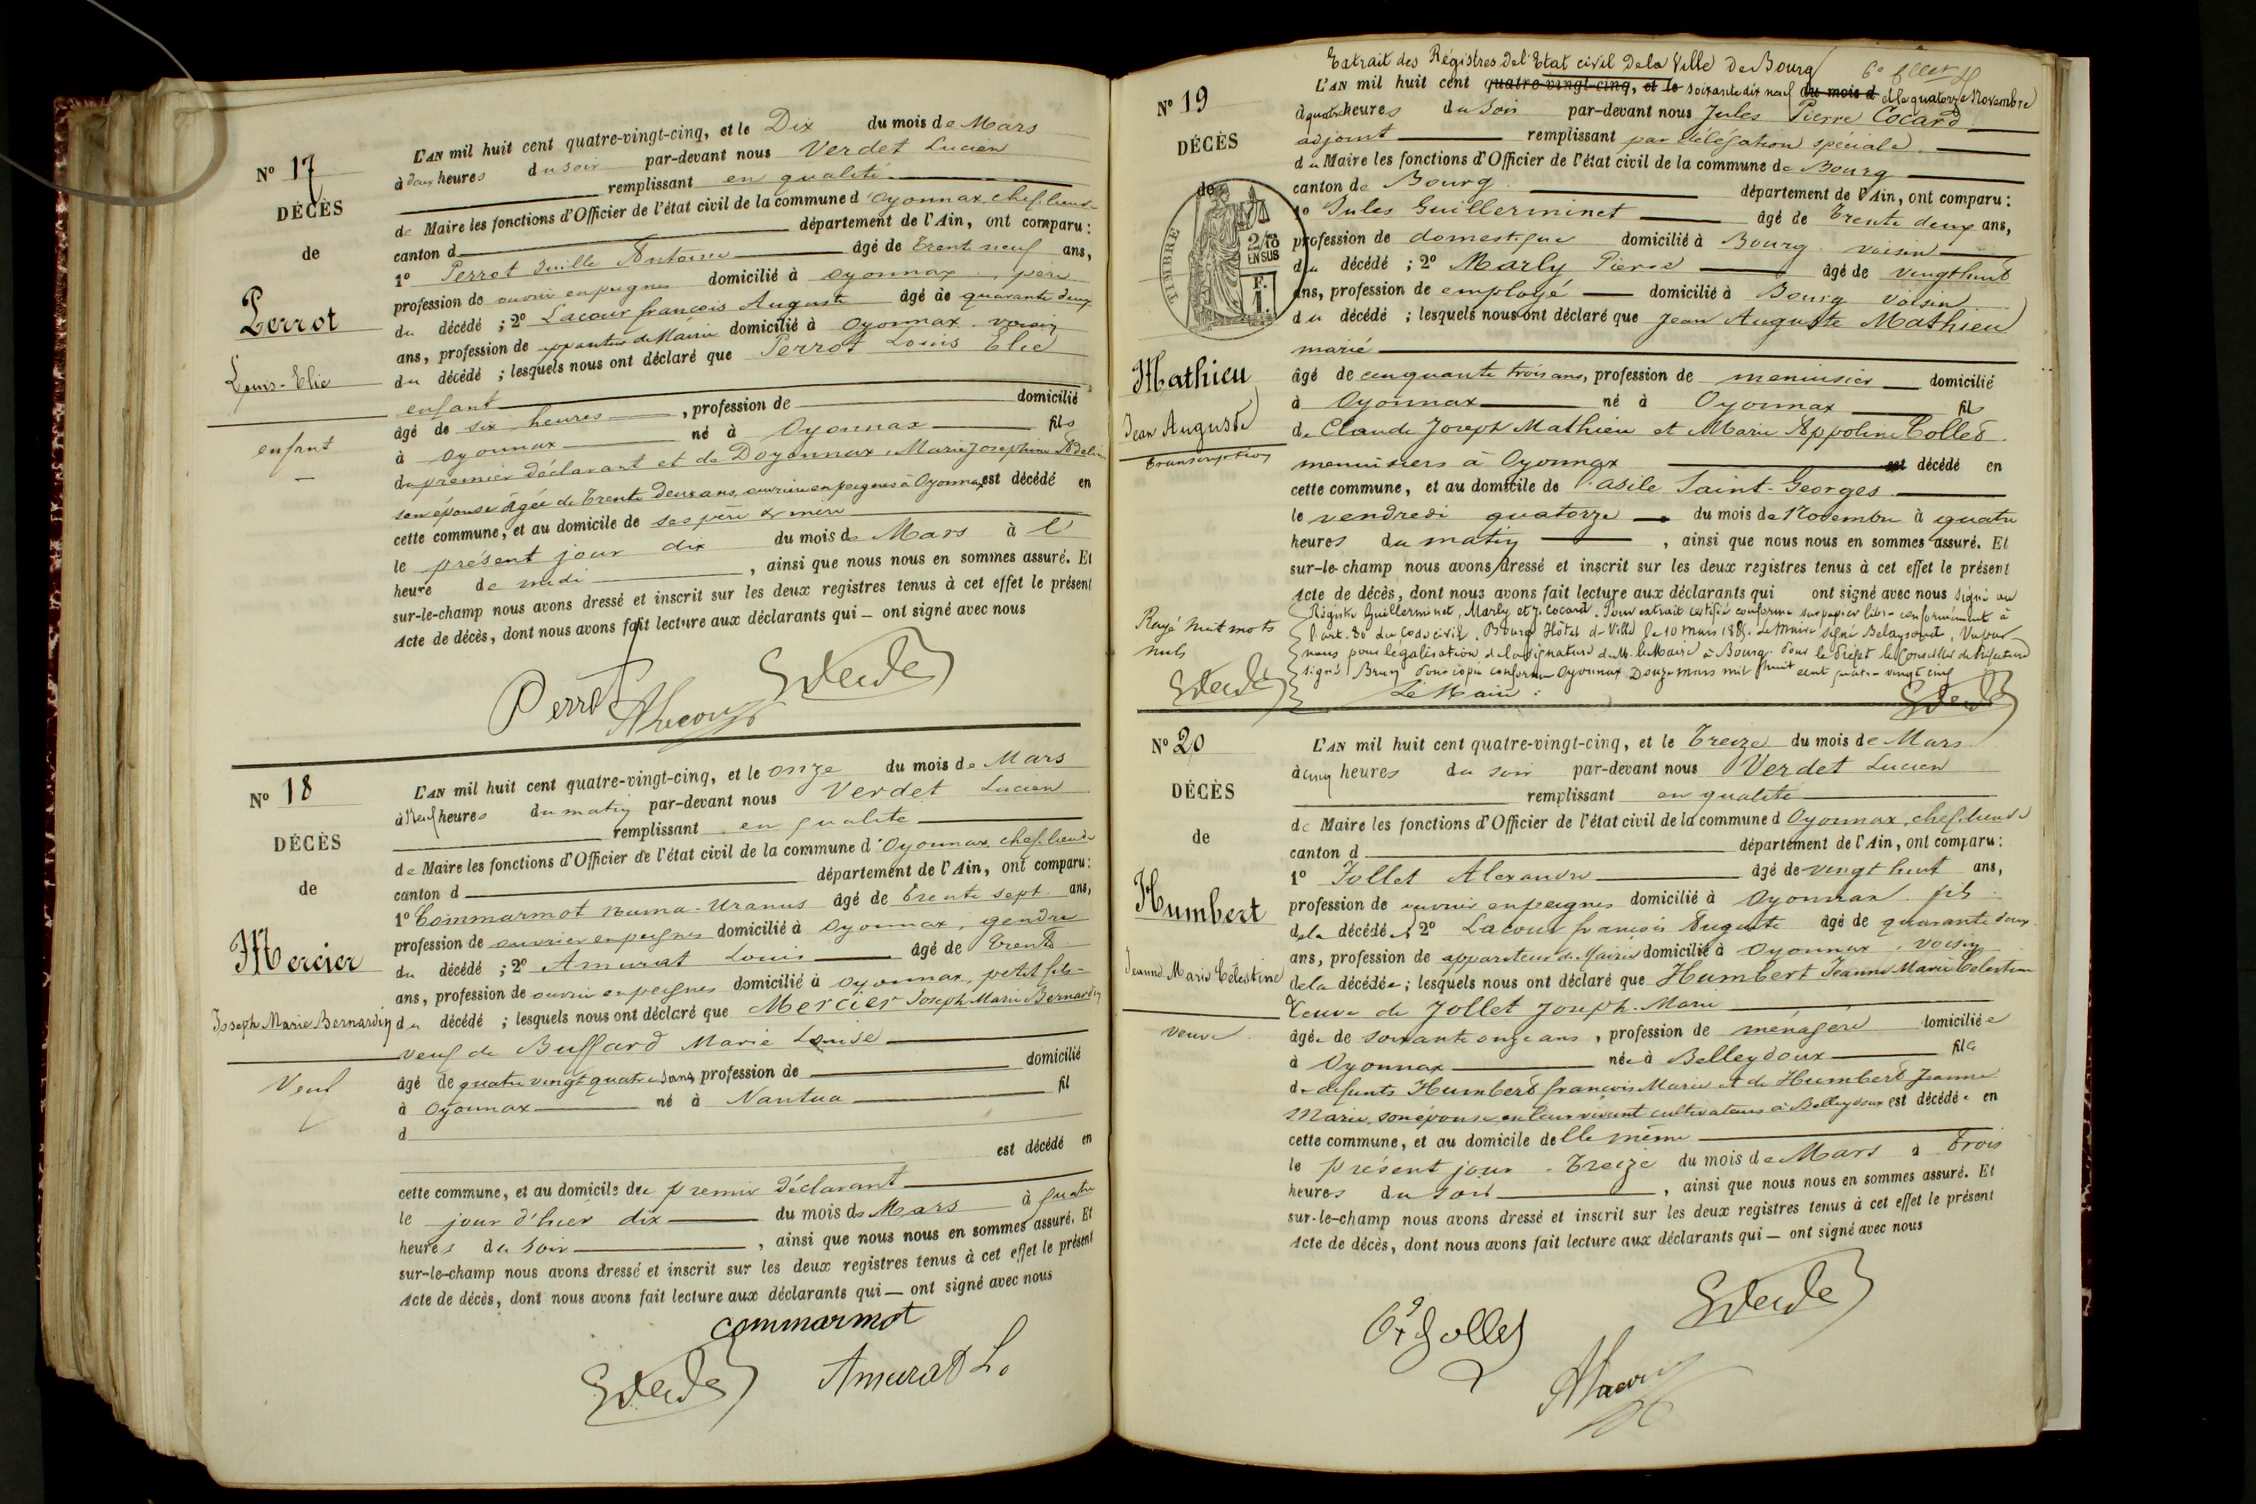 N° 17
DÉCÈS
de
Perrot
Louis-Elie
enfant
L'AN mil huit cent quatre-vingt-cinq, et le Dix du mois de Mars
à deux heures du soir par-devant nous Verdet Lucien
remplissant en qualité
de Maire les fonctions d'Officier de l'état civil de la commune d'Oyonnax, chef lieu de
canton d département de l'Ain, ont comparu :
1° Perrot Antoine âgé de trente neuf ans,
profession de ouvrier en peignes domicilié à Oyonnax, père
du décédé ; 2° Lacour françois Auguste âgé de quarante deux
ans, profession de appariteur de Mairie domicilié à Oyonnax, voisin
du décédé ; lesquels nous ont déclaré que Perrot Louis Elie
enfant
âgé de six heures, profession de domicilié
à Oyonnax né à Oyonnax fils
du premier déclarant et de Doyonnax, Marie Joséphine Adeline
son épouse âgée de trente deux ans, ouvrière en peignes à Oyonnax est décédé en
cette commune, et au domicile de ses père & mère
le présent jour dix du mois de Mars à l'
heure de midi, ainsi que nous nous en sommes assuré. Et
sur-le-champ nous avons dressé et inscrit sur les deux registres tenus à cet effet le présent
Acte de décès, dont nous avons fait lecture aux déclarants qui — ont signé avec nous
Perrot
N° 18
DÉCÈS
de
Mercier
Joseph Marie Bernardin
Veuf
L'AN mil huit cent quatre-vingt-cinq, et le onze du mois de Mars
à neuf heures du matin par-devant nous Verdet Lucien
remplissant en qualité
de Maire les fonctions d'Officier de l'état civil de la commune d'Oyonnax, chef lieu de
canton d département de l'Ain, ont comparu :
1° Commarmot Numa-Uranus âgé de trente sept ans,
profession de ouvrier en peignes domicilié à Oyonnax, gendre
du décédé ; 2° Amurat Louis âgé de trente
ans, profession de ouvrier en peignes domicilié à Oyonnax, petit fils
du décédé ; lesquels nous ont déclaré que Mercier Joseph Marie Bernardin
veuf de Buffard Marie Louise
âgé de quatre vingt quatre ans, profession de domicilié
à Oyonnax né à Nantua fil
d
est décédé en
cette commune, et au domicile du premier déclarant
le jour d'hier dix du mois de Mars à quatre
heures du soir, ainsi que nous nous en sommes assuré. Et
sur-le-champ nous avons dressé et inscrit sur les deux registres tenus à cet effet le présent
Acte de décès, dont nous avons fait lecture aux déclarants qui — ont signé avec nous
commarmot
Amurat L.
Extrait des Régistres de l'Etat civil de la Ville de Bourg
N° 19
DÉCÈS
de
TIMBRE
2/10 EN SUS
F. 1.
Mathieu
Jean Auguste
transcription
Rayé huit mots
nuls
L'AN mil huit cent quatre-vingt-cinq, et le soixante dix neuf du mois d et le quatorze Novembre
à quatre heures du soir par-devant nous Jules Pierre Cocard
adjoint remplissant par délégation spéciale
du Maire les fonctions d'Officier de l'état civil de la commune de Bourg
canton de Bourg département de l'Ain, ont comparu :
1° Jules Guillerminet âgé de trente deux ans,
profession de domestique domicilié à Bourg voisin
du décédé ; 2° Marly Pierre âgé de vingt huit
ans, profession de employé domicilié à Bourg voisin
du décédé ; lesquels nous ont déclaré que Jean Auguste Mathieu
marié
âgé de cinquante trois ans, profession de menuisier domicilié
à Oyonnax né à Oyonnax fils
de Claude Joseph Mathieu et Marie Appoline Collet
menuisiers à Oyonnax est décédé en
cette commune, et au domicile de l'asile Saint-Georges
le vendredi quatorze du mois de Novembre à quatre
heures du matin, ainsi que nous nous en sommes assuré. Et
sur-le-champ nous avons dressé et inscrit sur les deux registres tenus à cet effet le présent
Acte de décès, dont nous avons fait lecture aux déclarants qui ont signé avec nous signé au
Régistre Guillerminet, Marly et J. Cocard. Pour extrait certifié conforme sur papier libre conformément à
l'art. 80 du code civil, Bourg Hôtel de Ville le 10 mars 1885. Le Maire signé Vu par
nous pour légalisation de la signature de M. le Maire à Bourg. Pour le Préfet le Conseiller de Préfecture
signé Pour copie conforme Oyonnax Douze mars mil huit cent quatre vingt cinq
Le Maire :
N° 20
DÉCÈS
de
Humbert
Jeanne Marie Célestine
veuve
L'AN mil huit cent quatre-vingt-cinq, et le Treize du mois de Mars
à cinq heures du soir par-devant nous Verdet Lucien
remplissant en qualité
de Maire les fonctions d'Officier de l'état civil de la commune d Oyonnax, chef lieu de
canton d département de l'Ain, ont comparu :
1° Jollet Alexandre âgé de vingt huit ans,
profession de ouvrier en peignes domicilié à Oyonnax fils
de la décédée ; 2° Lacour françois Auguste âgé de quarante deux
ans, profession de appariteur de Mairie domicilié à Oyonnax, voisin
de la décédée ; lesquels nous ont déclaré que Humbert Jeanne Marie Célestine
Veuve de Jollet Joseph-Marie
âgée de soixante onze ans, profession de ménagère domiciliée
à Oyonnax née à Belleydoux fille
de défunts Humbert françois Marie et de Humbert Jeanne
Marie, son épouse, en leur vivant cultivateurs à Belleydoux est décédée en
cette commune, et au domicile d'elle même
le présent jour treize du mois de Mars à trois
heures du soir, ainsi que nous nous en sommes assuré. Et
sur-le-champ nous avons dressé et inscrit sur les deux registres tenus à cet effet le présent
Acte de décès, dont nous avons fait lecture aux déclarants qui — ont signé avec nous